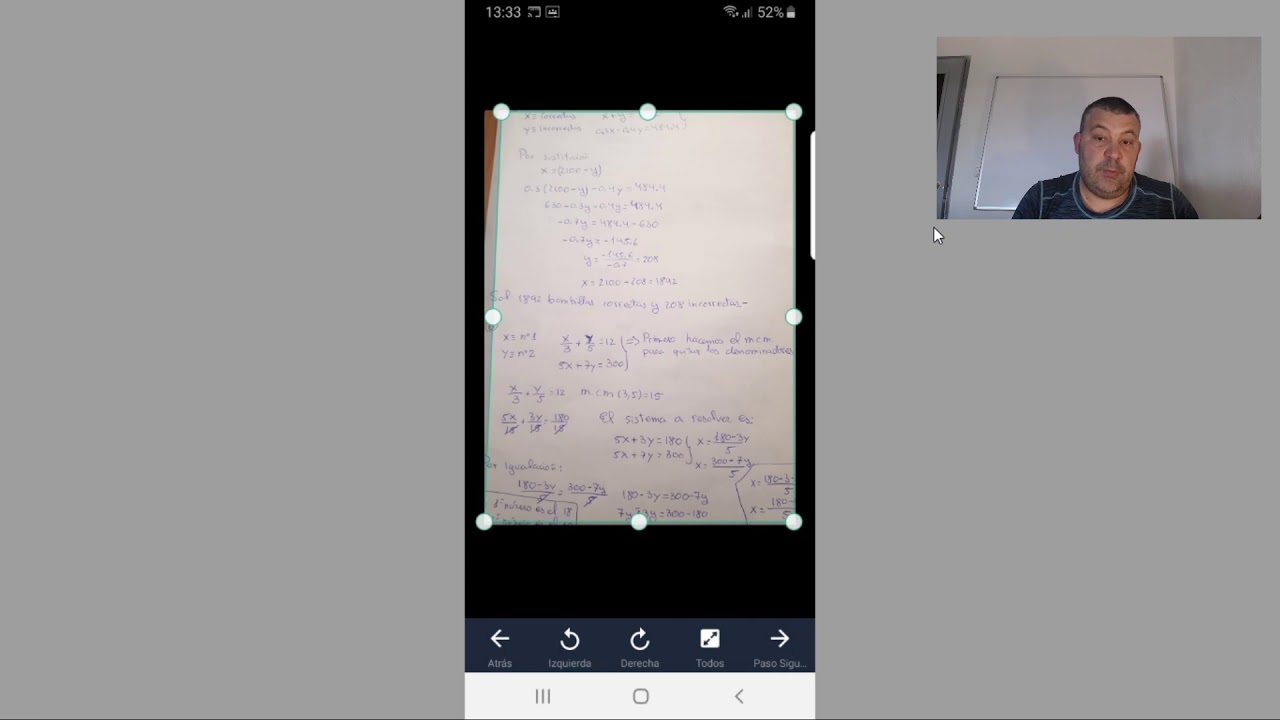 13:33 52%
x = correctas x+y =
y = incorrectas 0.3x-0.4y=484.4
Por sustitución
x = (2100-y)
0.3(2100-y)-0.4y=484.4
630-0.3y-0.4y=484.4
-0.7y=484.4-630
-0.7y=-145.6
y = -145.6/-0.7 = 208
x = 2100-208=1892
Sol 1892 bombillas correctas y 208 incorrectas-
x = nº1 x/3 + y/5 = 12 ⇒ Primero hacemos el mcm
y = nº2 5x+7y=300 para quitar los denominadores
x/3 + y/5 = 12 m.c.m (3,5)=15
5x/15 + 3y/15 = 180/15 El sistema a resolver es:
5x+3y=180 x = 180-3y/5
5x+7y=300 x = 300-7y/5
Igualación:
180-3y/5 = 300-7y/5 180-3y=300-7y
7y-3y=300-180
x = 180-3-/5
x = 180-/5
número es el 18
Atrás Izquierda Derecha Todos Paso Sigu...